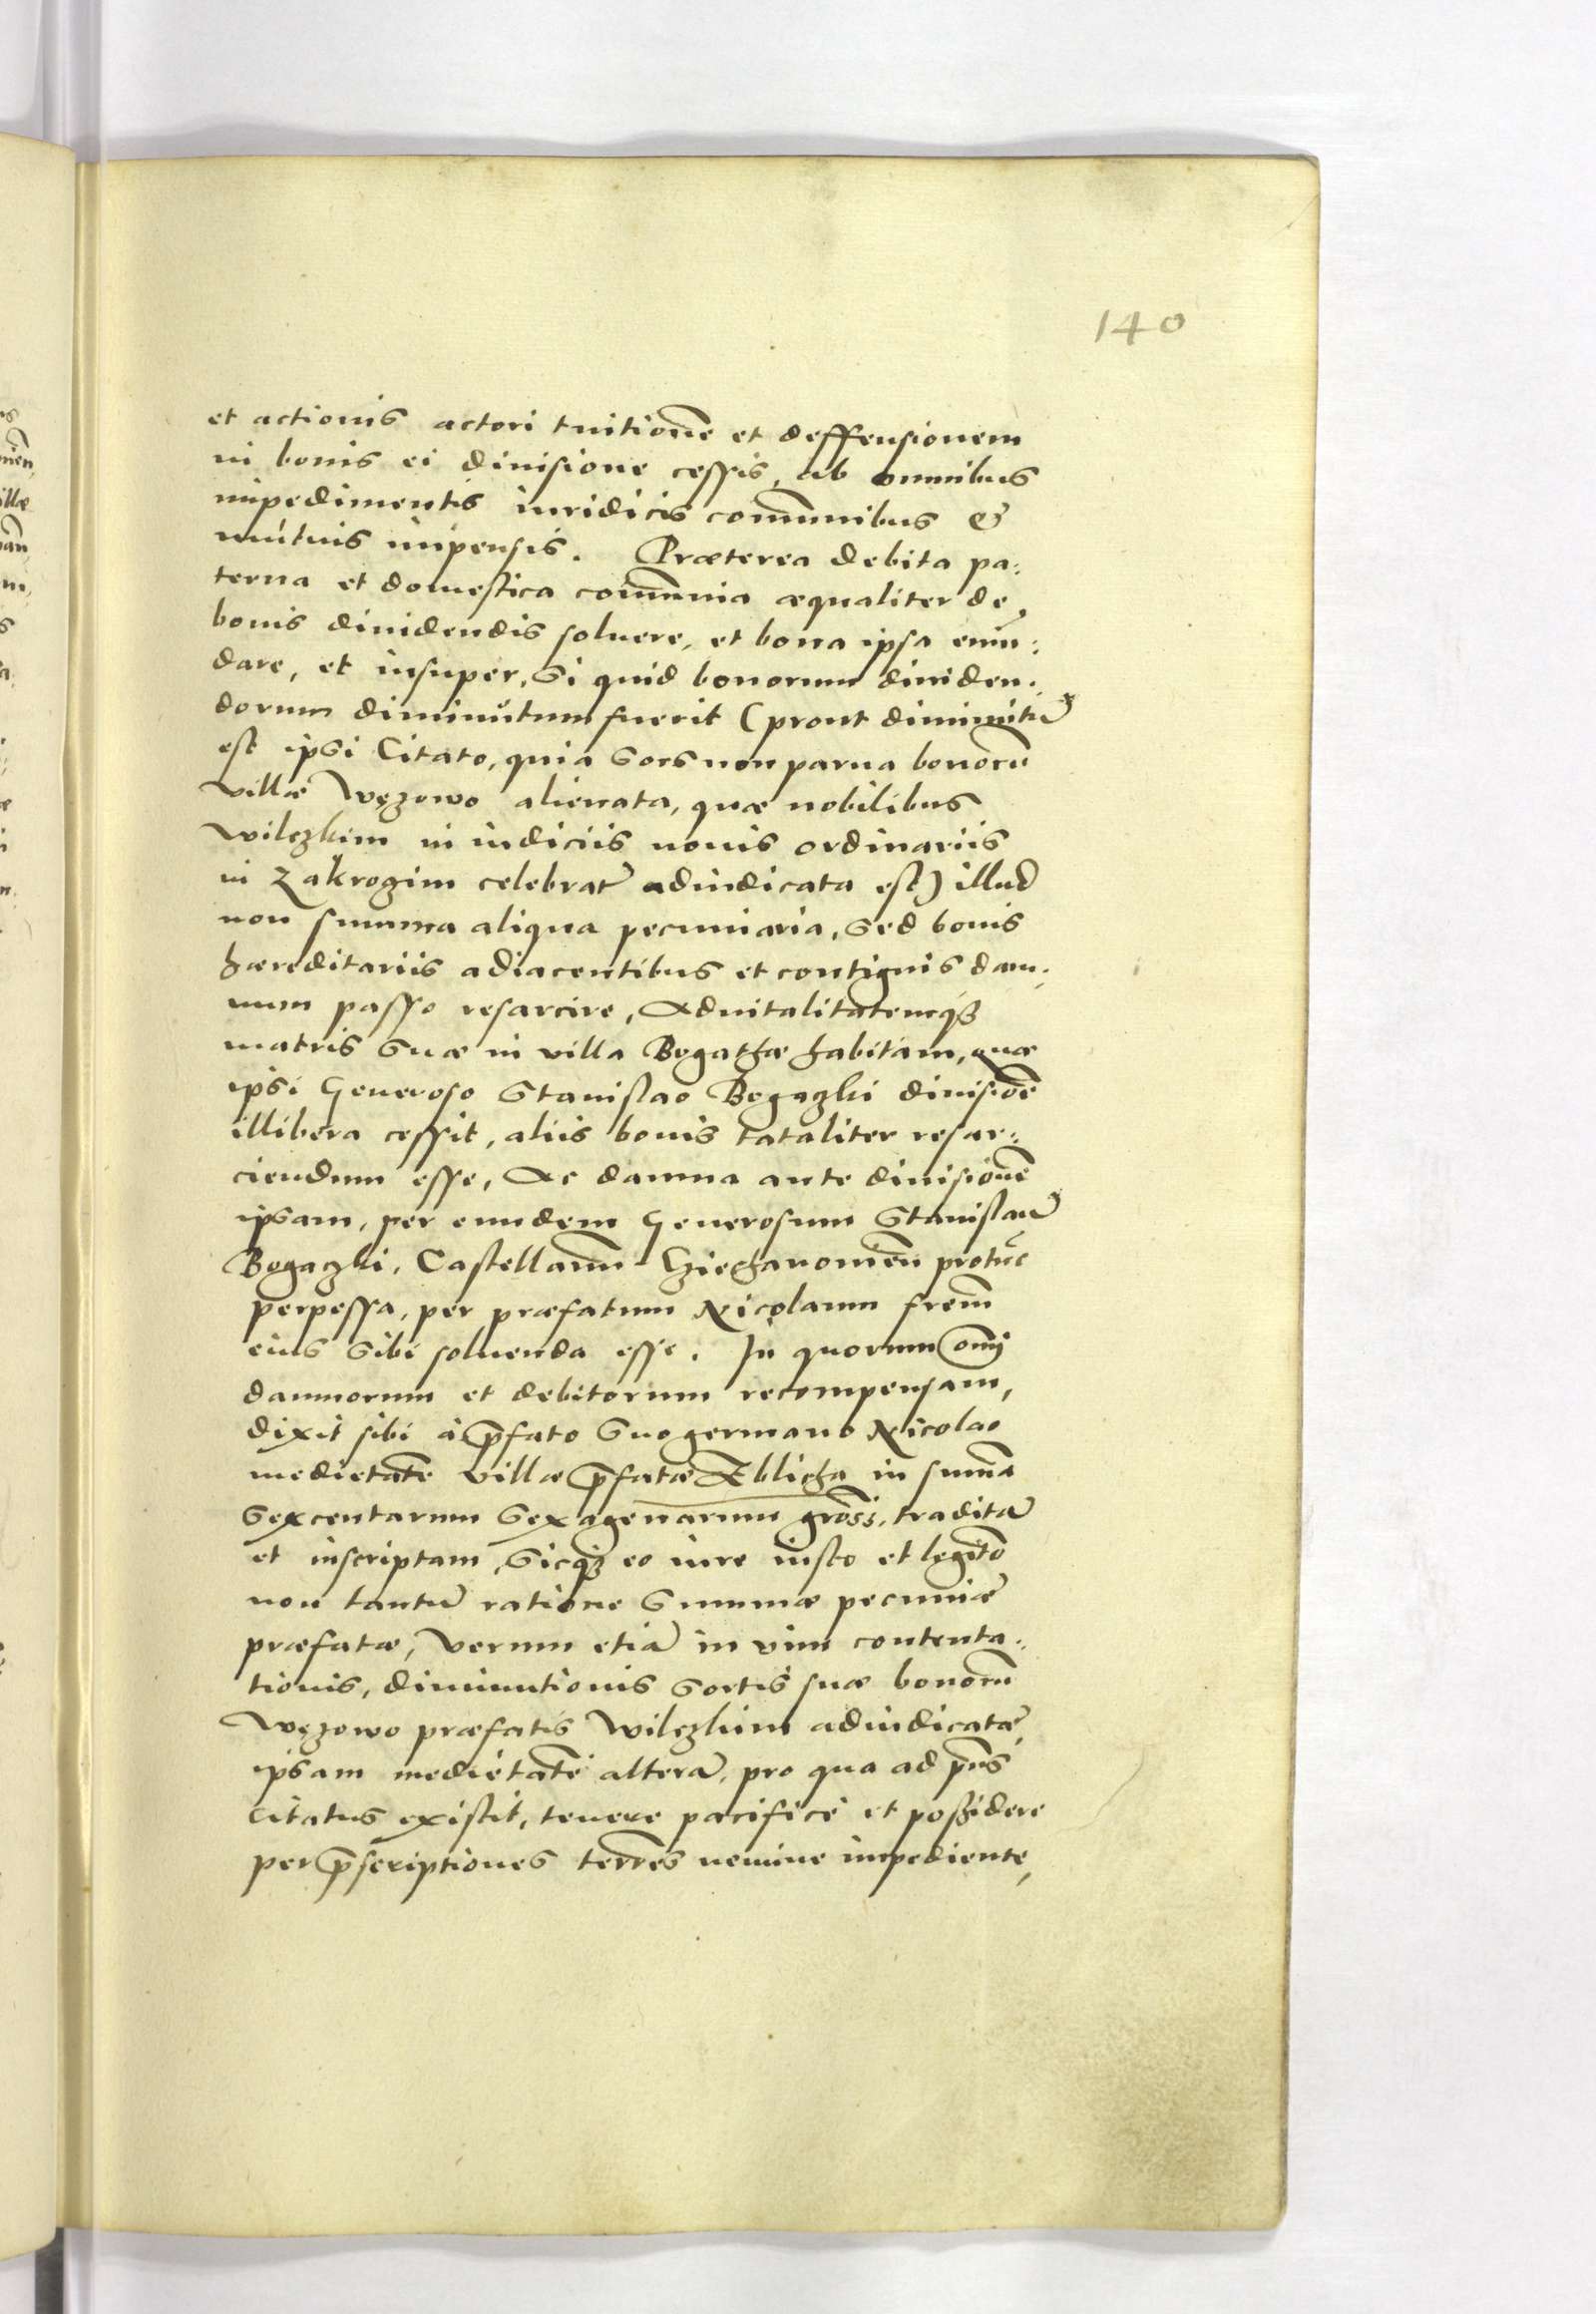 140
et actionis actori tuitionē et deffensionem
in bonis ei diuisione cessis, ab omnibus
impedimentis iuridicis com̄unibus &
mútuis impensis. Præterea debita pa:
terna et domestica com̄unia æqualiter de,
bonis diuidendis soluere, et bona ipsa emū:
dare, et insuper, si quid bonorum diuiden:
dorum diminŭtum fuerit (prout diminutū
est ipsi Citato, quia sors non parua bonorū
villæ Węzowo alienata, quæ nobilibus
Wilczkim in iudiciis nouis ordinariis
in Zakrozim celebrat̃ adiudicata est) illud
non summa aliqua pecuniaria, sed bonis
hæreditariis adiacentibus et contiguis dam:
num passo resarcire, Aduitalitatemq̃
matris suæ in villa Bogathæ habitam, quæ
ipsi Generoso Stanislao Bogaczki diuisiōe
illibera cessit, aliis bonis tataliter resar:
ciendum esse, Ac damna ante diuisionē
ipsam, per eundem Generosum Stanislaū
Bogaczki, Castellanū Cziechanomēn protūc
perpessa, per præfatum Nicolaum frem̄
eius sibi soluenda esse. In quorum om̄i
damnorum et debitorum recompensam,
dixit sibi á p̄fato suo germano Nicolao
medietatē villæ p̄fatæ Zblicha in sum̄a
sexcentarum sexagenarum gross̄, traditā
et inscriptam, sicq̃ eo iure iusto et legit̄o
non tantū ratione summæ pecuniæ
præfatæ, verum etiā in vim contenta:
tionis, diminutionis sortis suæ bonorū
Węzowo præfatis Wilczkim adiudicatæ,
ipsam medietatē alterā, pro qua ad p̄ns
citatus existit, tenere pacificè et possidere
per p̄scriptiones terrēs nemine impediente,